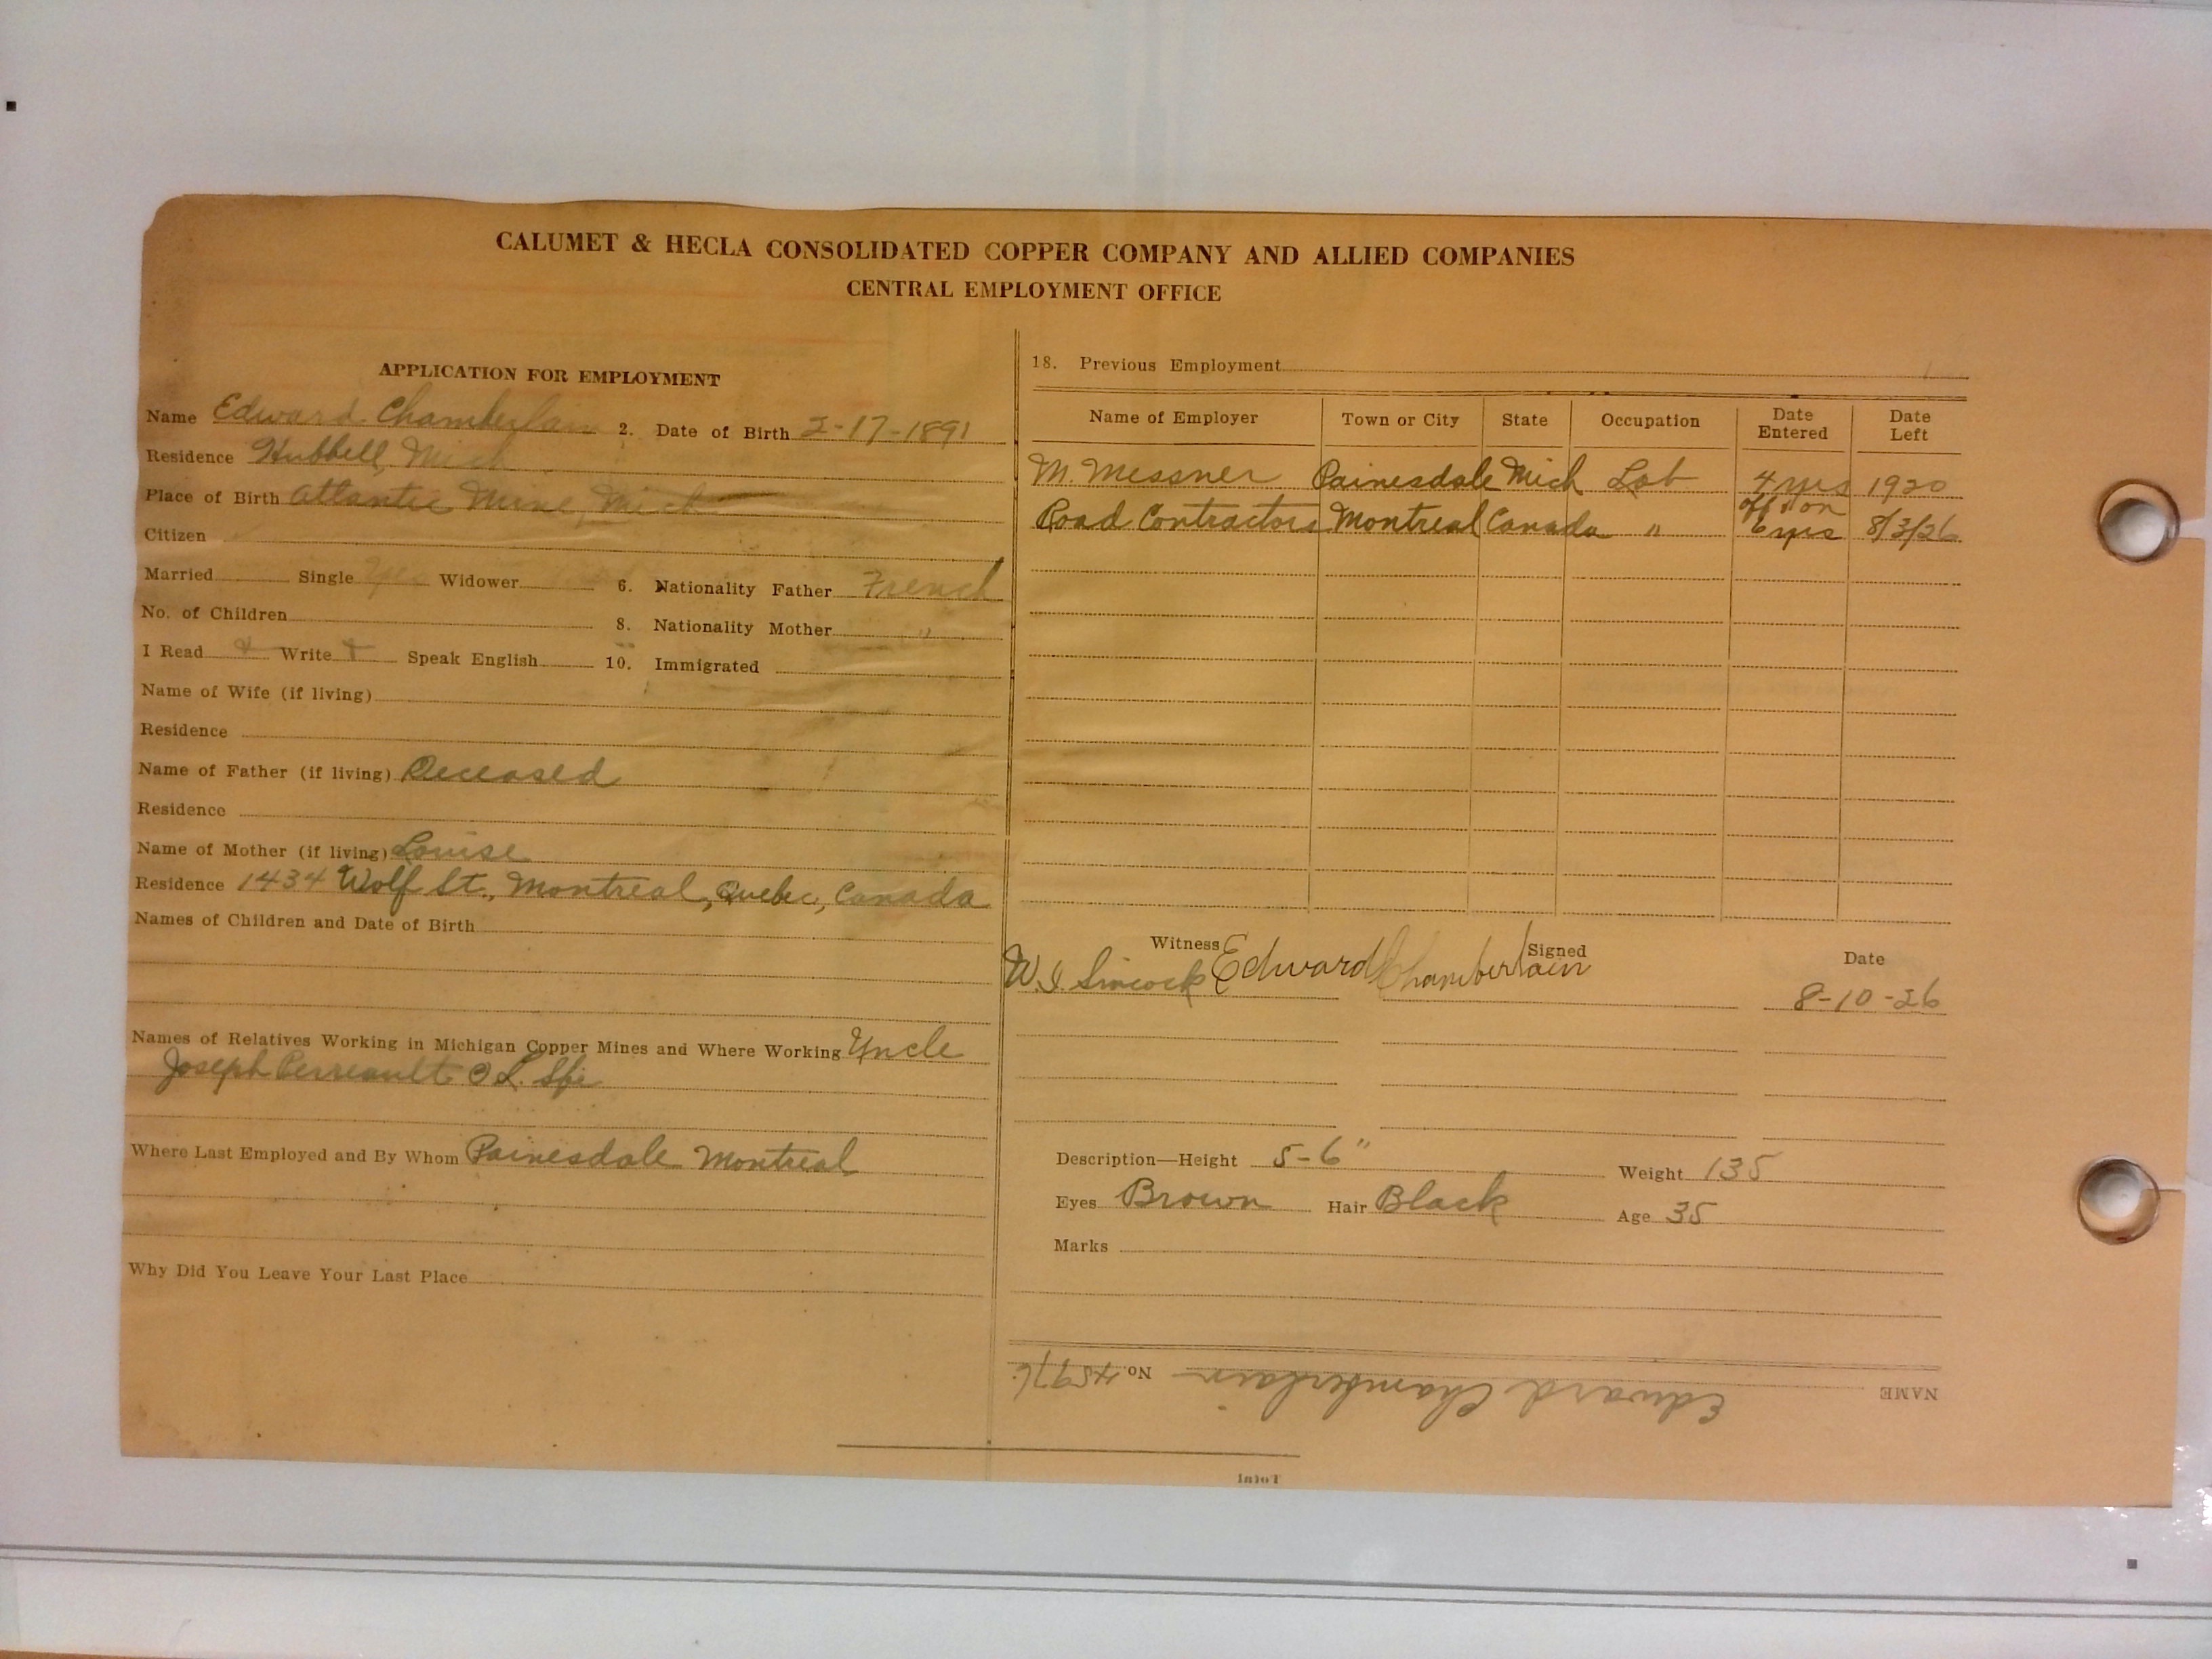 CALUMET & HECLA CONSOLIDATED COPPER COMPANY AND ALLIED COMPANIES
CENTRAL EMPLOYMENT OFFICE
APPLICATION FOR EMPLOYMENT
Name Edward Chamberlain 2. Date of Birth 2-17-1891
Residence Hubbell, Mich
Place of Birth Atlantic Mine, Mich
Citizen
Married Single Yes Widower 6. Nationality Father French
No. of Children 8. Nationality Mother "
I Read Write Speak English 10. Immigrated
Name of Wife (if living)
Residence
Name of Father (if living) Deceased
Residence
Name of Mother (if living) Louise
Residence 1434 Wolf St., Montreal, Quebec, Canada
Names of Children and Date of Birth
Names of Relatives Working in Michigan Copper Mines and Where Working Uncle
Joseph Perreault
Where Last Employed and By Whom Painesdale Montreal
Why Did You Leave Your Last Place
18. Previous Employment
Name of Employer Town or City State Occupation Date Entered Date Left
M. Messner Painesdale Mich Lab 4 yrs 1920
off & on
Road Contractors Montreal Canada " 6 yrs 8/3/26
Witness Signed Date
W.J. Sincock Edward Chamberlain 8-10-26
Description—Height 5-6" Weight 135
Eyes Brown Hair Black Age 35
Marks
NAME Edward Chamberlain No. 45976
Total